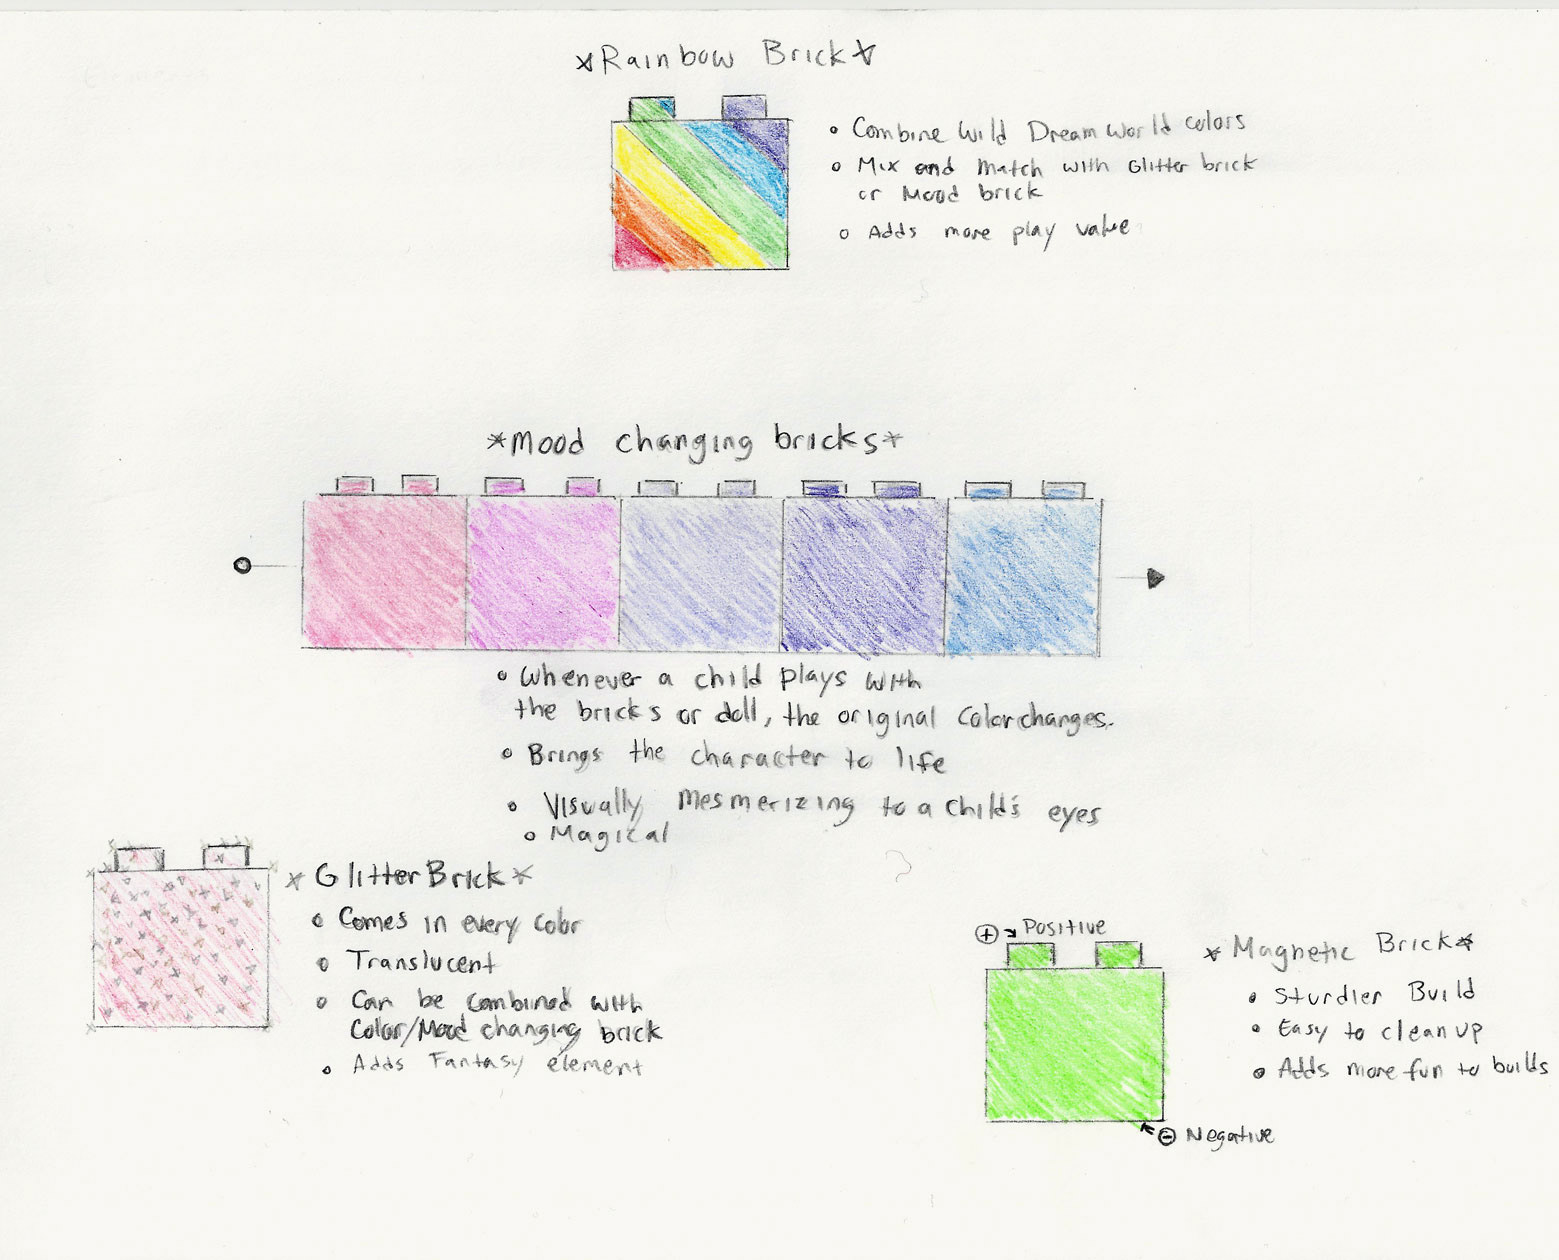 *Rainbow Brick*
• Combine Wild Dream World colors
• Mix and Match with Glitter brick
or Mood brick
• Adds more play value
*Mood changing bricks*
• Whenever a child plays with
the bricks or doll, the original Color changes.
• Brings the character to life
• Visually Mesmerizing to a child's eyes
• Magical
*Glitter Brick*
• Comes in every color
• Translucent
• Can be combined with
Color/Mood changing brick
• Adds Fantasy element
+ Positive
*Magnetic Brick*
• Sturdier Build
• Easy to clean up
• Adds more fun to builds
- Negative